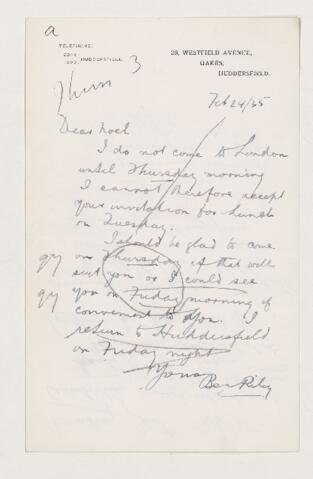 a
TELEPHONE.
28, WESTFIELD AVENUE,
HUDDERSFIELD.
OAKES,
HUDDERSFIELD.
Thurs 3
Feb 24/25
Dear Noel
I do not come to London
until Thursday morning
I cannot therefore accept
your invitation for Lunch
on Tuesday.
I should be glad to come
on Thursday if that will
suit you or I could see
you on Friday morning if
convenient to you. I
return to Huddersfield
on Friday night
Yours
Ben Riley